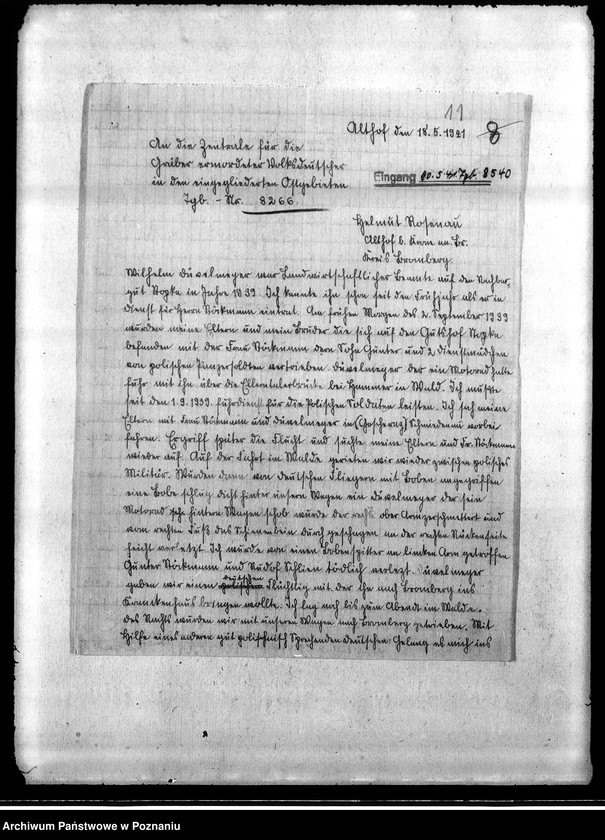 11
Althof den 18.5.1941
8
An die Zentrale für die
Gräber ermordeter Volksdeutscher
in den eingegliederten Ostgebieten
Tgb. - Nr. 8266.
Eingang 20.5.41 Tgb. 8540
Helmut Rosenau
Althof b. Krone an. Br.
Kreis Bromberg.
Wilhelm Düvelmeyer war Landwirtschaftlicher Beamte auf den Nachbar-
gut Stopka in Jahre 1939. Ich kannte ihn schon seit den Frühjahr als er in
dienst für Herrn Stöckmann eintrat. Am frühen Morgen des 2. September 1939
wurden meine Eltern und mein Bruder die sich auf den Gutshof Stopka
befanden mit der Frau Stöckmann dern Sohn Günter und 2 dienstmädchen
von polischen Panzersoldten vertrieben. Düvelmeyer der ein Motorrad hatte
fuhr mit ihn über die brücke bei Hammer in Wald. Ich mußte
seit den 1.9.1939. fuhrdienst für die Polischen Soldaten leisten. Ich sah meine
Eltern mit Frau Stöckmann und Düvelmeyer in Schmiedenau vorbei
fahren. Ergriff später die Flucht und suchte meine Eltern und Fr. Stöckmann
wieder auf. Auf der Fahrt im Walde gerieten wir wieder zwischen polisches
Militär. Wurden dann von deutschen Fliegern mit Boben angegriffen
eine Bobe schlug dicht hinter unsern Wagen ein Düvelmeyer der sein
Motorrad hintern Wagen schob wurde der rechte ober Arm zerschmettert und
vom rechten Fuß das Schienenbein durch geschagen an der rechten Rückenseite
leicht verletzt. Ich wurde von einen Bobensplitter am linken Arm getroffen
Günter Stöckmann und Rudolf Schlien tödlich verlezt. Düvelmeyer
gaben wir einem deutschen Flüchtlig mit der ihn nach Bromberg ins
Kranckenhaus bringen wollte. Ich lag noch bis zum Abend im Walde.
des Nachts wurden wir mit unseren Wagen nach Bromberg getrieben. Mit
Hilfe eines anderen gut polischnisch Sprechenden deutschen. Gelang es mich ins
Archiwum Państwowe w Poznaniu